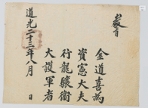 敎旨
金道喜爲
資憲大夫
行龍驤衛
大護軍者
道光二十三年八月 日